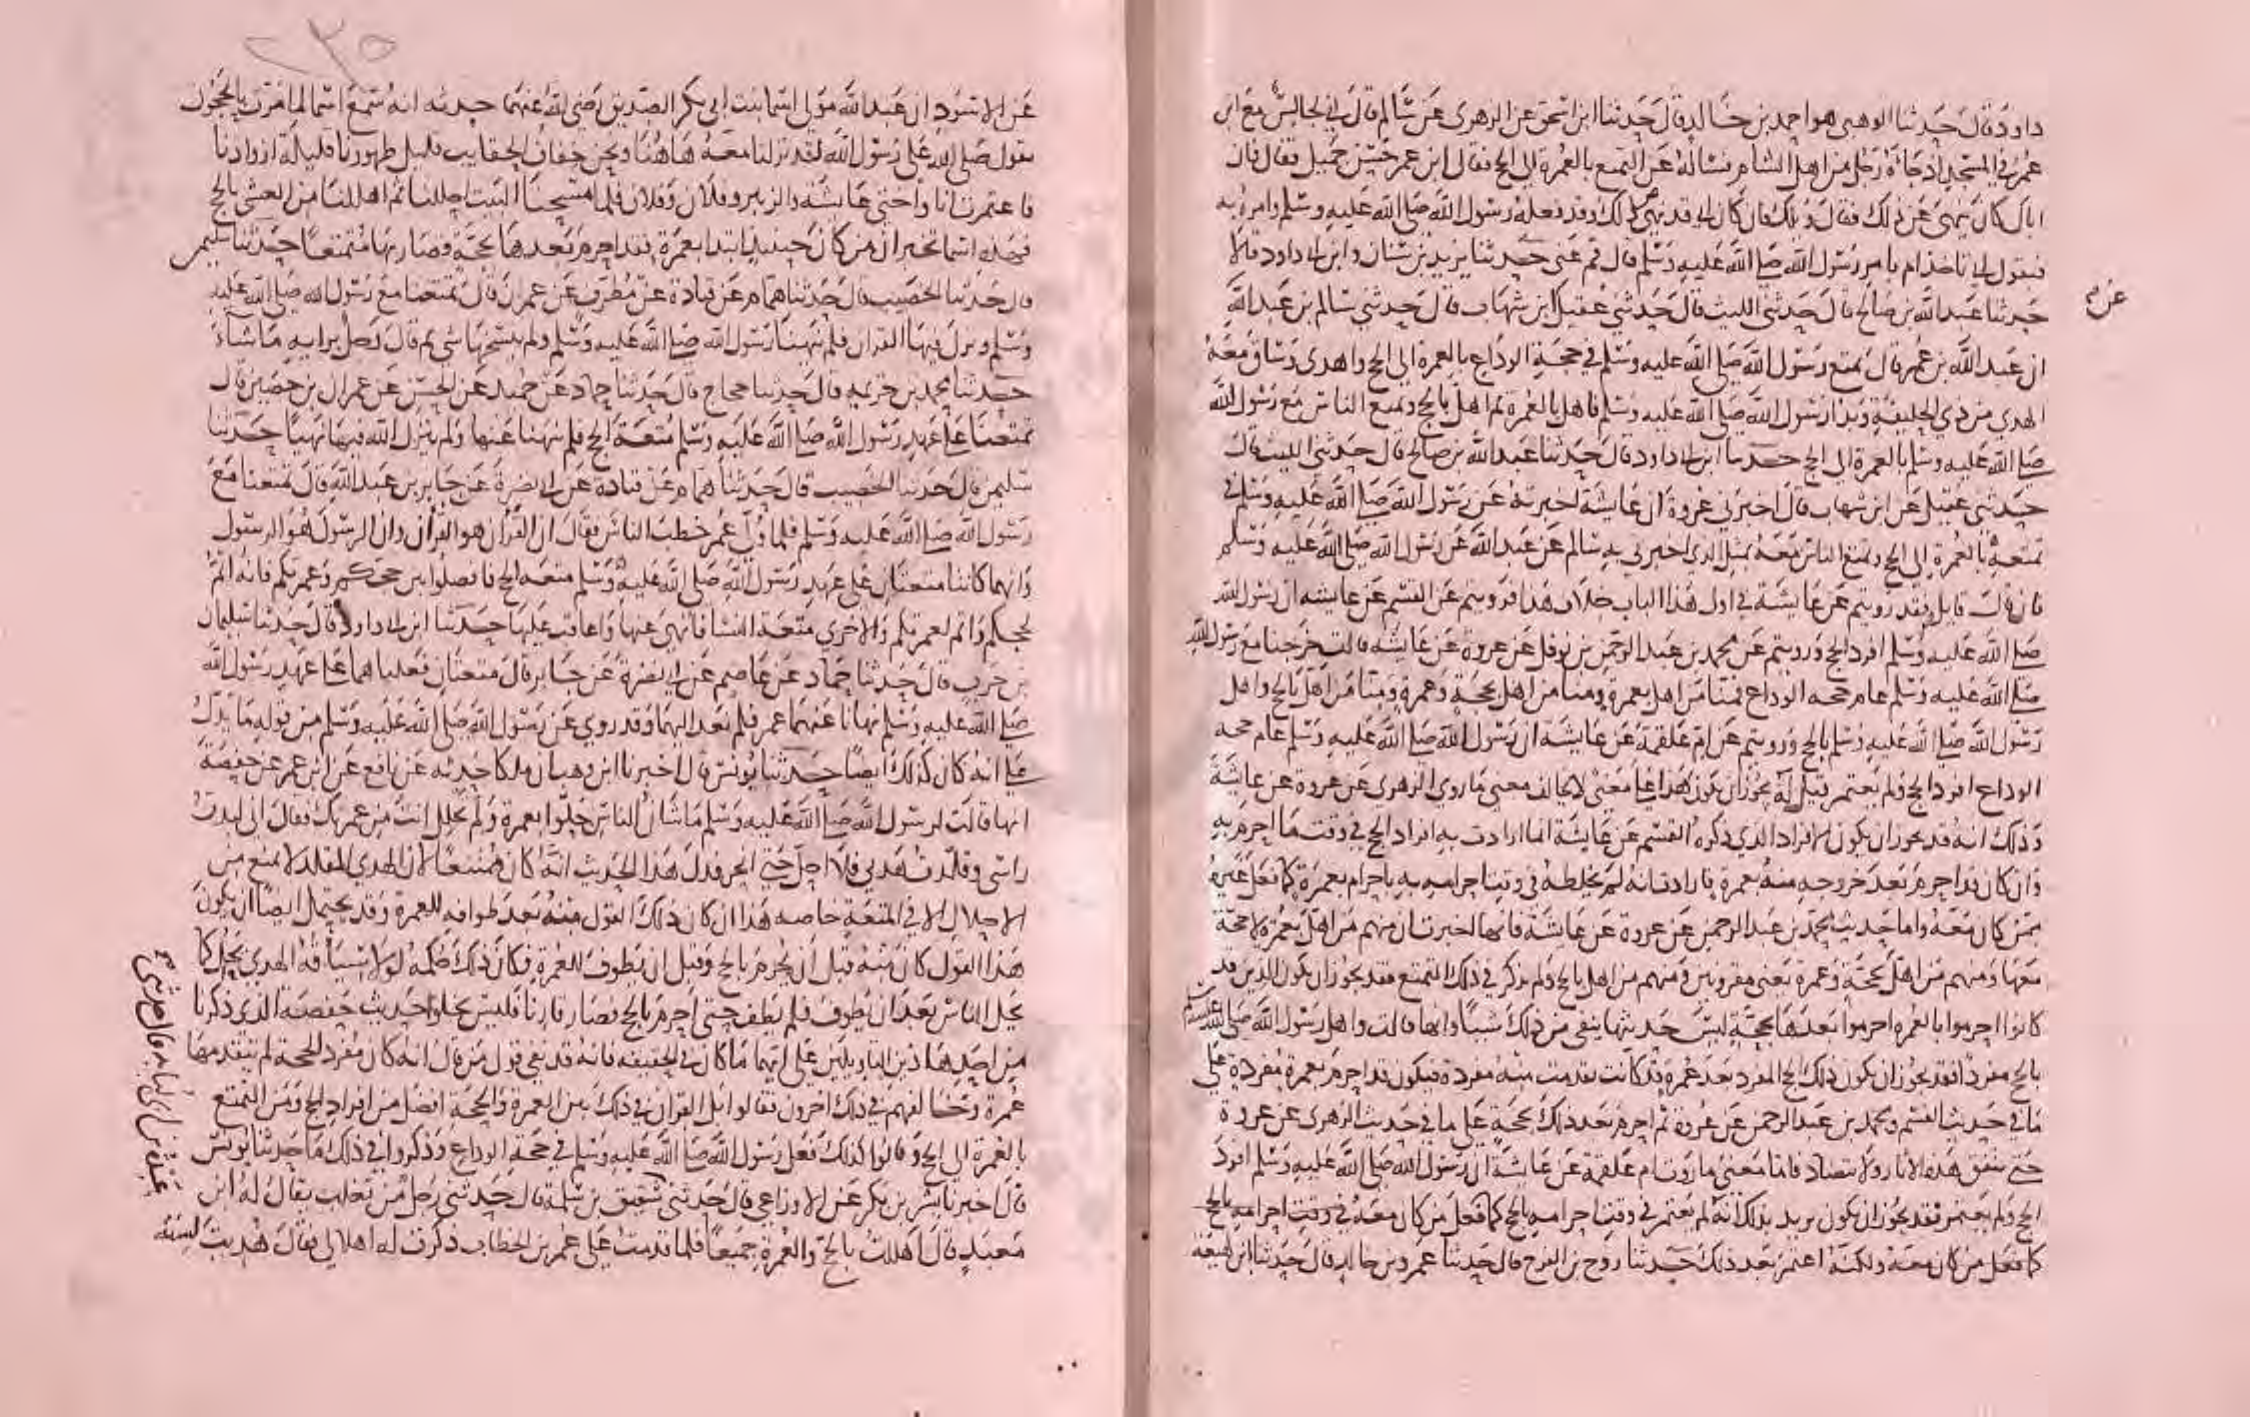 داود قال حدثنا الوهبي هو احمد بن خالد قال حدثنا ابن اسحق عن الزهري عن سالم قال اني لجالس مع ابن
عمر في المسجد اذ جاءه رجل من اهل الشام فساله عن التمتع بالعمرة الى الحج فقال ابن عمر حسن جميل فقال فان
اباك كان ينهى عن ذلك فقال ويلك فان كان ابي قد نهى عن ذلك وقد فعله رسول الله صلى الله عليه وسلم وامر به
فبقول ابي تاخذ ام بامر رسول الله صلى الله عليه وسلم قال قم عني حدثنا يزيد بن سنان وابن ابي داود قالا
حدثنا عبد الله بن صالح قال حدثني الليث قال حدثني عقيل ابن شهاب قال حدثني سالم بن عبد الله
عن
ان عبد الله بن عمر قال تمتع رسول الله صلى الله عليه وسلم في حجة الوداع بالعمرة الى الحج واهدى وساق معه
الهدي من ذي الحليفة وبدا رسول الله صلى الله عليه وسلم فاهل بالعمرة ثم اهل بالحج وتمتع الناس مع رسول الله
صلى الله عليه وسلم بالعمرة الى الحج حدثنا ابن ابي داود قال حدثنا عبد الله بن صالح قال حدثني الليث قال
حدثني عقيل عن ابن شهاب قال اخبرني عروة ان عايشة اخبرته عن رسول الله صلى الله عليه وسلم في
تمتعه بالعمرة الى الحج وتمتع الناس معه بمثل الذي اخبرني به سالم عن عبد الله عن رسول الله صلى الله عليه وسلم
فان قال قايل فقد رويتم عن عايشة في اول هذا الباب خلاف هذا فرويتم عن القسم عن عايشه ان رسول الله
صلى الله عليه وسلم افرد الحج ورويتم عن محمد بن عبد الرحمن بن نوفل عن عروة عن عايشه قالت خرجنا مع رسول الله
صلى الله عليه وسلم عام حجه الوداع فمنا من اهل بعمرة ومنا من اهل بحجة وعمرة ومنا من اهل بالحج واهل
رسول الله صلى الله عليه وسلم بالحج ورويتم عن ام علقمة عن عايشة ان رسول الله صلى الله عليه وسلم عام حجه
الوداع افرد الحج ولم يعتمر قيل له يجوز ان يكون هذا على معنى لا يخالف معنى ما روى الزهري عن عروة عن عايشة
وذلك انه قد يجوز ان يكون الافراد الذي ذكره القسم عن عايشة انما ارادت به افراد الحج في وقت ما احرم به
وان كان قد احرم بعد خروجه منه بعمرة فارادت انه لم يخلطه في وقت احرامه به باحرام بعمرة كما فعل غيره
ممن كان معه واما حديث محمد بن عبد الرحمن عن عروة عن عايشة فانها اخبرت ان منهم من اهل بعمرة لا حجة
معها ومنهم من اهل بحجة وعمرة يعني مقرونين ومنهم من اهل بالحج ولم يذكر في ذلك التمتع فقد يجوز ان يكون الذين قد
كانوا احرموا بالعمره احرموا بعدها بحجة ليس حديثها ينفي من ذلك شيئا وانها قالت واهل رسول الله صلى الله عليه وسلم
بالحج مفردا فقد يجوز ان يكون ذلك الحج المفرد بعد عمرة قد كانت تقدمت منه مفردة فيكون قد احرم بعمرة مفردة على
ما في حديث القسم ومحمد بن عبد الرحمن عن عروة ثم احرم بعد ذلك بحجة على ما في حديث الزهري عن عروة
حتى تتفق هذه الاثار ولا تتضاد فاما معنى ما روت ام علقمة عن عايشة ان رسول الله صلى الله عليه وسلم افرد
الحج ولم يعتمر فقد يجوز ان يكون يريد بذلك انه لم يعتمر في وقت احرامه بالحج كما فعل من كان معه في وقت احرامه بالحج
كما فعل من كان معه ولكنه اعتمر بعد ذلك حدثنا روح بن الفرج قال حدثنا عمرو بن خالد قال حدثنا ابن لهيعة
عن الاسود ان عبد الله مولى اسما بنت ابي بكر الصديق رضي الله عنهما حدثه انه سمع اسما لما مرت بالحجون
تقول صلى الله على رسول الله لقد نزلنا معه هاهنا ونحن خفاف الحقايب قليل ظهورنا قليلة ازوادنا
فاعتمرت انا واختي عايشة والزبير وفلان وفلان فلما مسحنا البيت احللنا ثم اهللنا من العشي بالحج
فهذه اسما تخبر ان من كان حينيذ ابتدا بعمرة فقد احرم بعدها بحجة فصار بها متمتعا حدثنا سليمن
قال حدثنا الخصيب قال حدثنا همام عن قتادة عن مطرف عن عمران قال تمتعنا مع رسول الله صلى الله عليه
وسلم ونزل فيها القران فلم ينهنا رسول الله صلى الله عليه وسلم ولم ينسخها شي ثم قال رجل برايه ما شاء
حدثنا محمد بن خزيمه قال حدثنا حجاج قال حدثنا حماد عن حميد عن الحسن عن عمران بن حصين قال
تمتعنا على عهد رسول الله صلى الله عليه وسلم متعة الحج فلم ينهنا عنها ولم ينزل الله فيها نهيا حدثنا
سليمن قال حدثنا الخصيب قال حدثنا همام عن قتادة عن ابي نضرة عن جابر بن عبد الله قال تمتعنا مع
رسول الله صلى الله عليه وسلم فلما ولي عمر خطب الناس فقال ان القران هو القران وان الرسول هو الرسول
وانهما كانتا متعتان على عهد رسول الله صلى الله عليه وسلم متعه الحج فافصلوا بين حجكم وعمرتكم فانه اتم
لحجكم واتم لعمرتكم والاخرى متعة النسا فانهى عنها واعاقب عليها حدثنا ابن ابي داود قال حدثنا سليمان
بن حرب قال حدثنا حماد عن عاصم عن ابي نضرة عن جابر قال متعتان فعلناهما على عهد رسول الله
صلى الله عليه وسلم نهانا عنهما عمر فلم نعد اليهما وقد روي عن رسول الله صلى الله عليه وسلم من قوله ما يدل
على انه كان كذلك ايضا حدثنا يونس قال اخبرنا ابن وهب ان ملكا حدثه عن نافع عن ابن عمر عن حفصة
انها قالت لرسول الله صلى الله عليه وسلم ما شان الناس حلوا بعمرة ولم تحلل انت من عمرتك فقال اني لبدت
راسي وقلدت هديي فلا احل حتى انحر فدل هذا الحديث انه كان متمتعا لان الهدي المقلد لا يمنع من
الاحلال الا في المتعة خاصه هذا ان كان ذلك القول منه بعد طوافه للعمرة وقد يحتمل ايضا ان يكون
هذا القول كان منه قبل ان يحرم بالحج وقبل ان يطوف للعمرة فكان ذلك حكمه لولا سياقه الهدي يحل كما
يحل الناس بعد ان يطوف فلم يطف حتى احرم بالحج فصار قارنا فليس يخلوا حديث حفصة الذي ذكرنا
من احد هاذين التاويلين على ايهما ما كان في الحقيقه فانه قد نفى قول من قال انه كان مفردا لحجة لم يتقدمها
عمرة وخالفهم في ذلك اخرون فقالوا بل القران في ذلك بين العمرة والحجة افضل من افراد الحج ومن التمتع
بالعمرة الى الحج وقالوا كذلك فعل رسول الله صلى الله عليه وسلم في حجة الوداع وذكروا في ذلك ما حدثنا يونس
قال اخبرنا بشر بن بكر عن الاوزاعي قال حدثني شقيق بن سلمة قال حدثني رجل من تغلب يقال له ابن
معبد قال اهللت بالحج والعمرة جميعا فلما قدمت على عمر بن الخطاب ذكرت له اهلالي فقال هديت لسنه